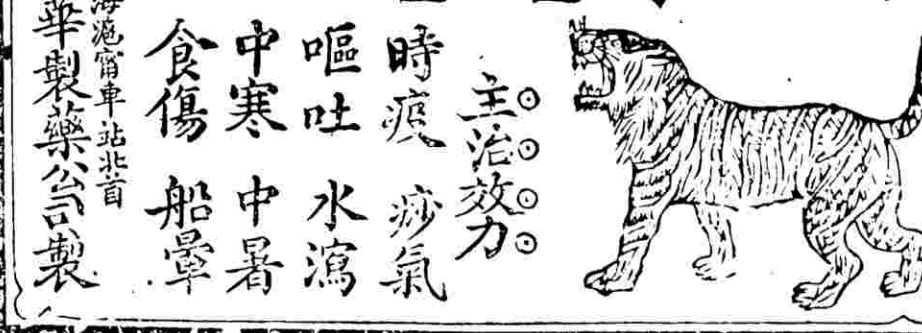 主治效力
時疫 痧氣
嘔吐 水瀉
中寒 中暑
食傷 船暈
海滬甯車站北首
華製藥公司製